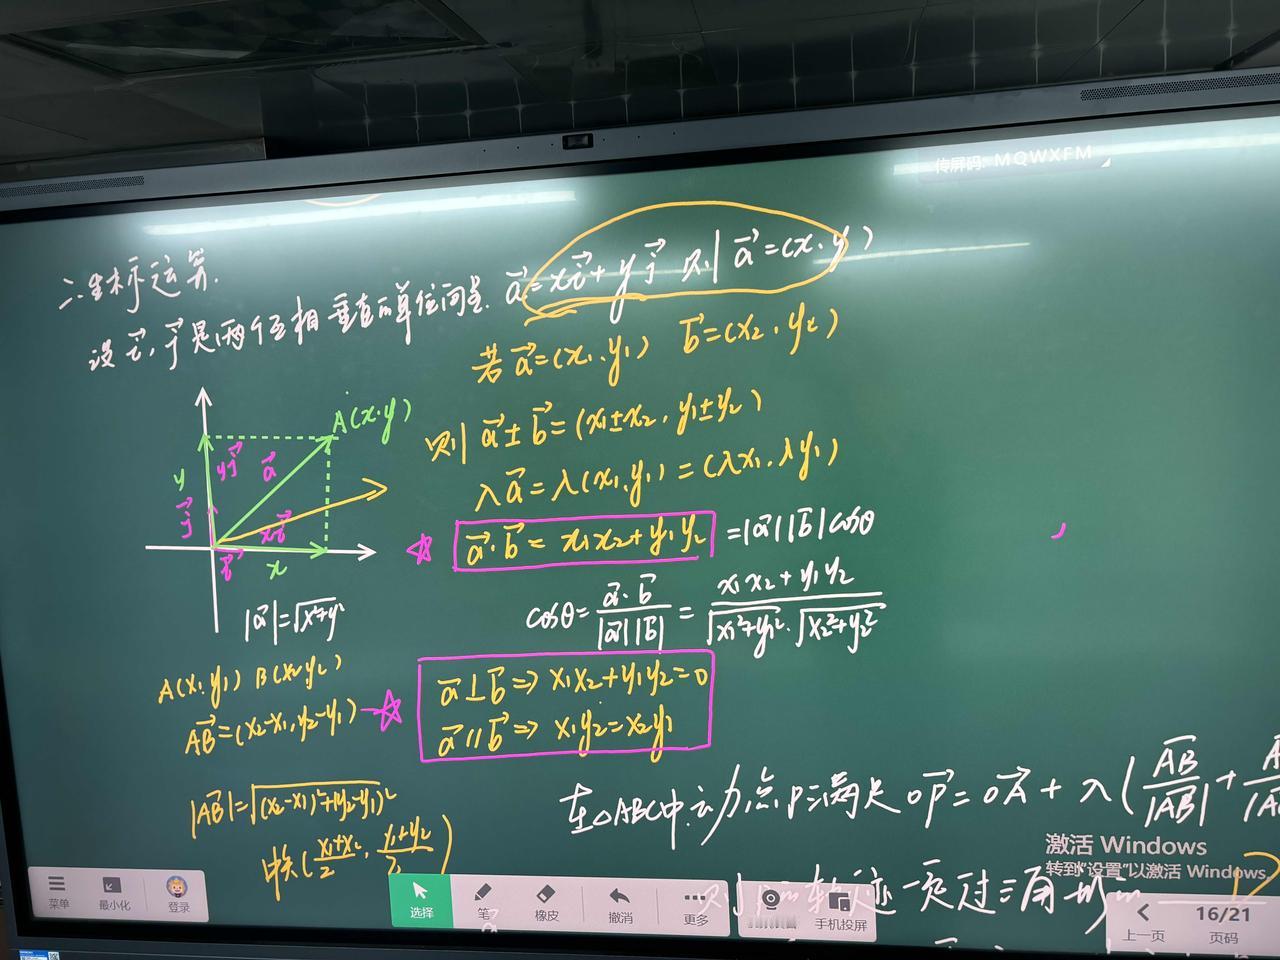 传屏码: MQWXFM
二、坐标运算.
设 i⃗, j⃗ 是两个互相垂直的单位向量. a⃗=xi⃗+yj⃗ 则 a⃗=(x,y)
若 a⃗=(x₁,y₁) b⃗=(x₂,y₂)
则 a⃗±b⃗=(x₁±x₂, y₁±y₂)
λa⃗=λ(x₁,y₁)=(λx₁,λy₁)
a⃗·b⃗=x₁x₂+y₁y₂ =|a⃗||b⃗|cosθ
cosθ=a⃗·b⃗/|a⃗||b⃗| = (x₁x₂+y₁y₂)/(√(x₁²+y₁²)·√(x₂²+y₂²))
a⃗⊥b⃗⇒x₁x₂+y₁y₂=0
a⃗//b⃗⇒x₁y₂=x₂y₁
A(x,y)
y
yj⃗
a⃗
j⃗
xi⃗
i⃗
x
|a⃗|=√(x²+y²)
A(x₁,y₁) B(x₂,y₂)
AB⃗=(x₂-x₁,y₂-y₁)
|AB⃗|=√((x₂-x₁)²+(y₂-y₁)²)
中点((x₁+x₂)/2, (y₁+y₂)/2)
在△ABC中,动点P满足 OP⃗=OA⃗+λ(AB/|AB|+
轨迹一定过三角形
激活 Windows
转到"设置"以激活 Windows。
菜单
最小化
登录
选择
笔
橡皮
撤消
更多
手机投屏
上一页
16/21
页码